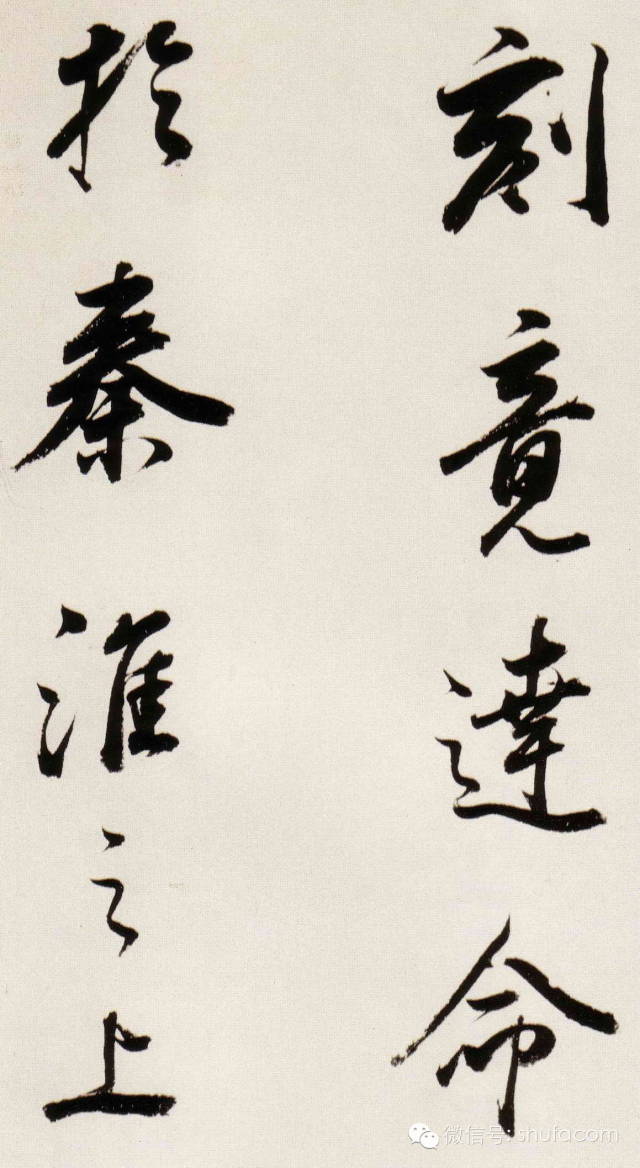 刻竟達命
於秦淮之上
微信号: shufacom